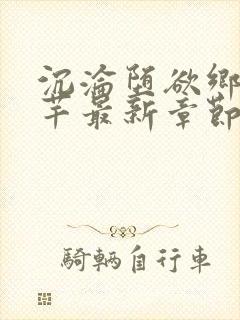 沉淪墮欲鄉
芊最新章節
騎輛自行車